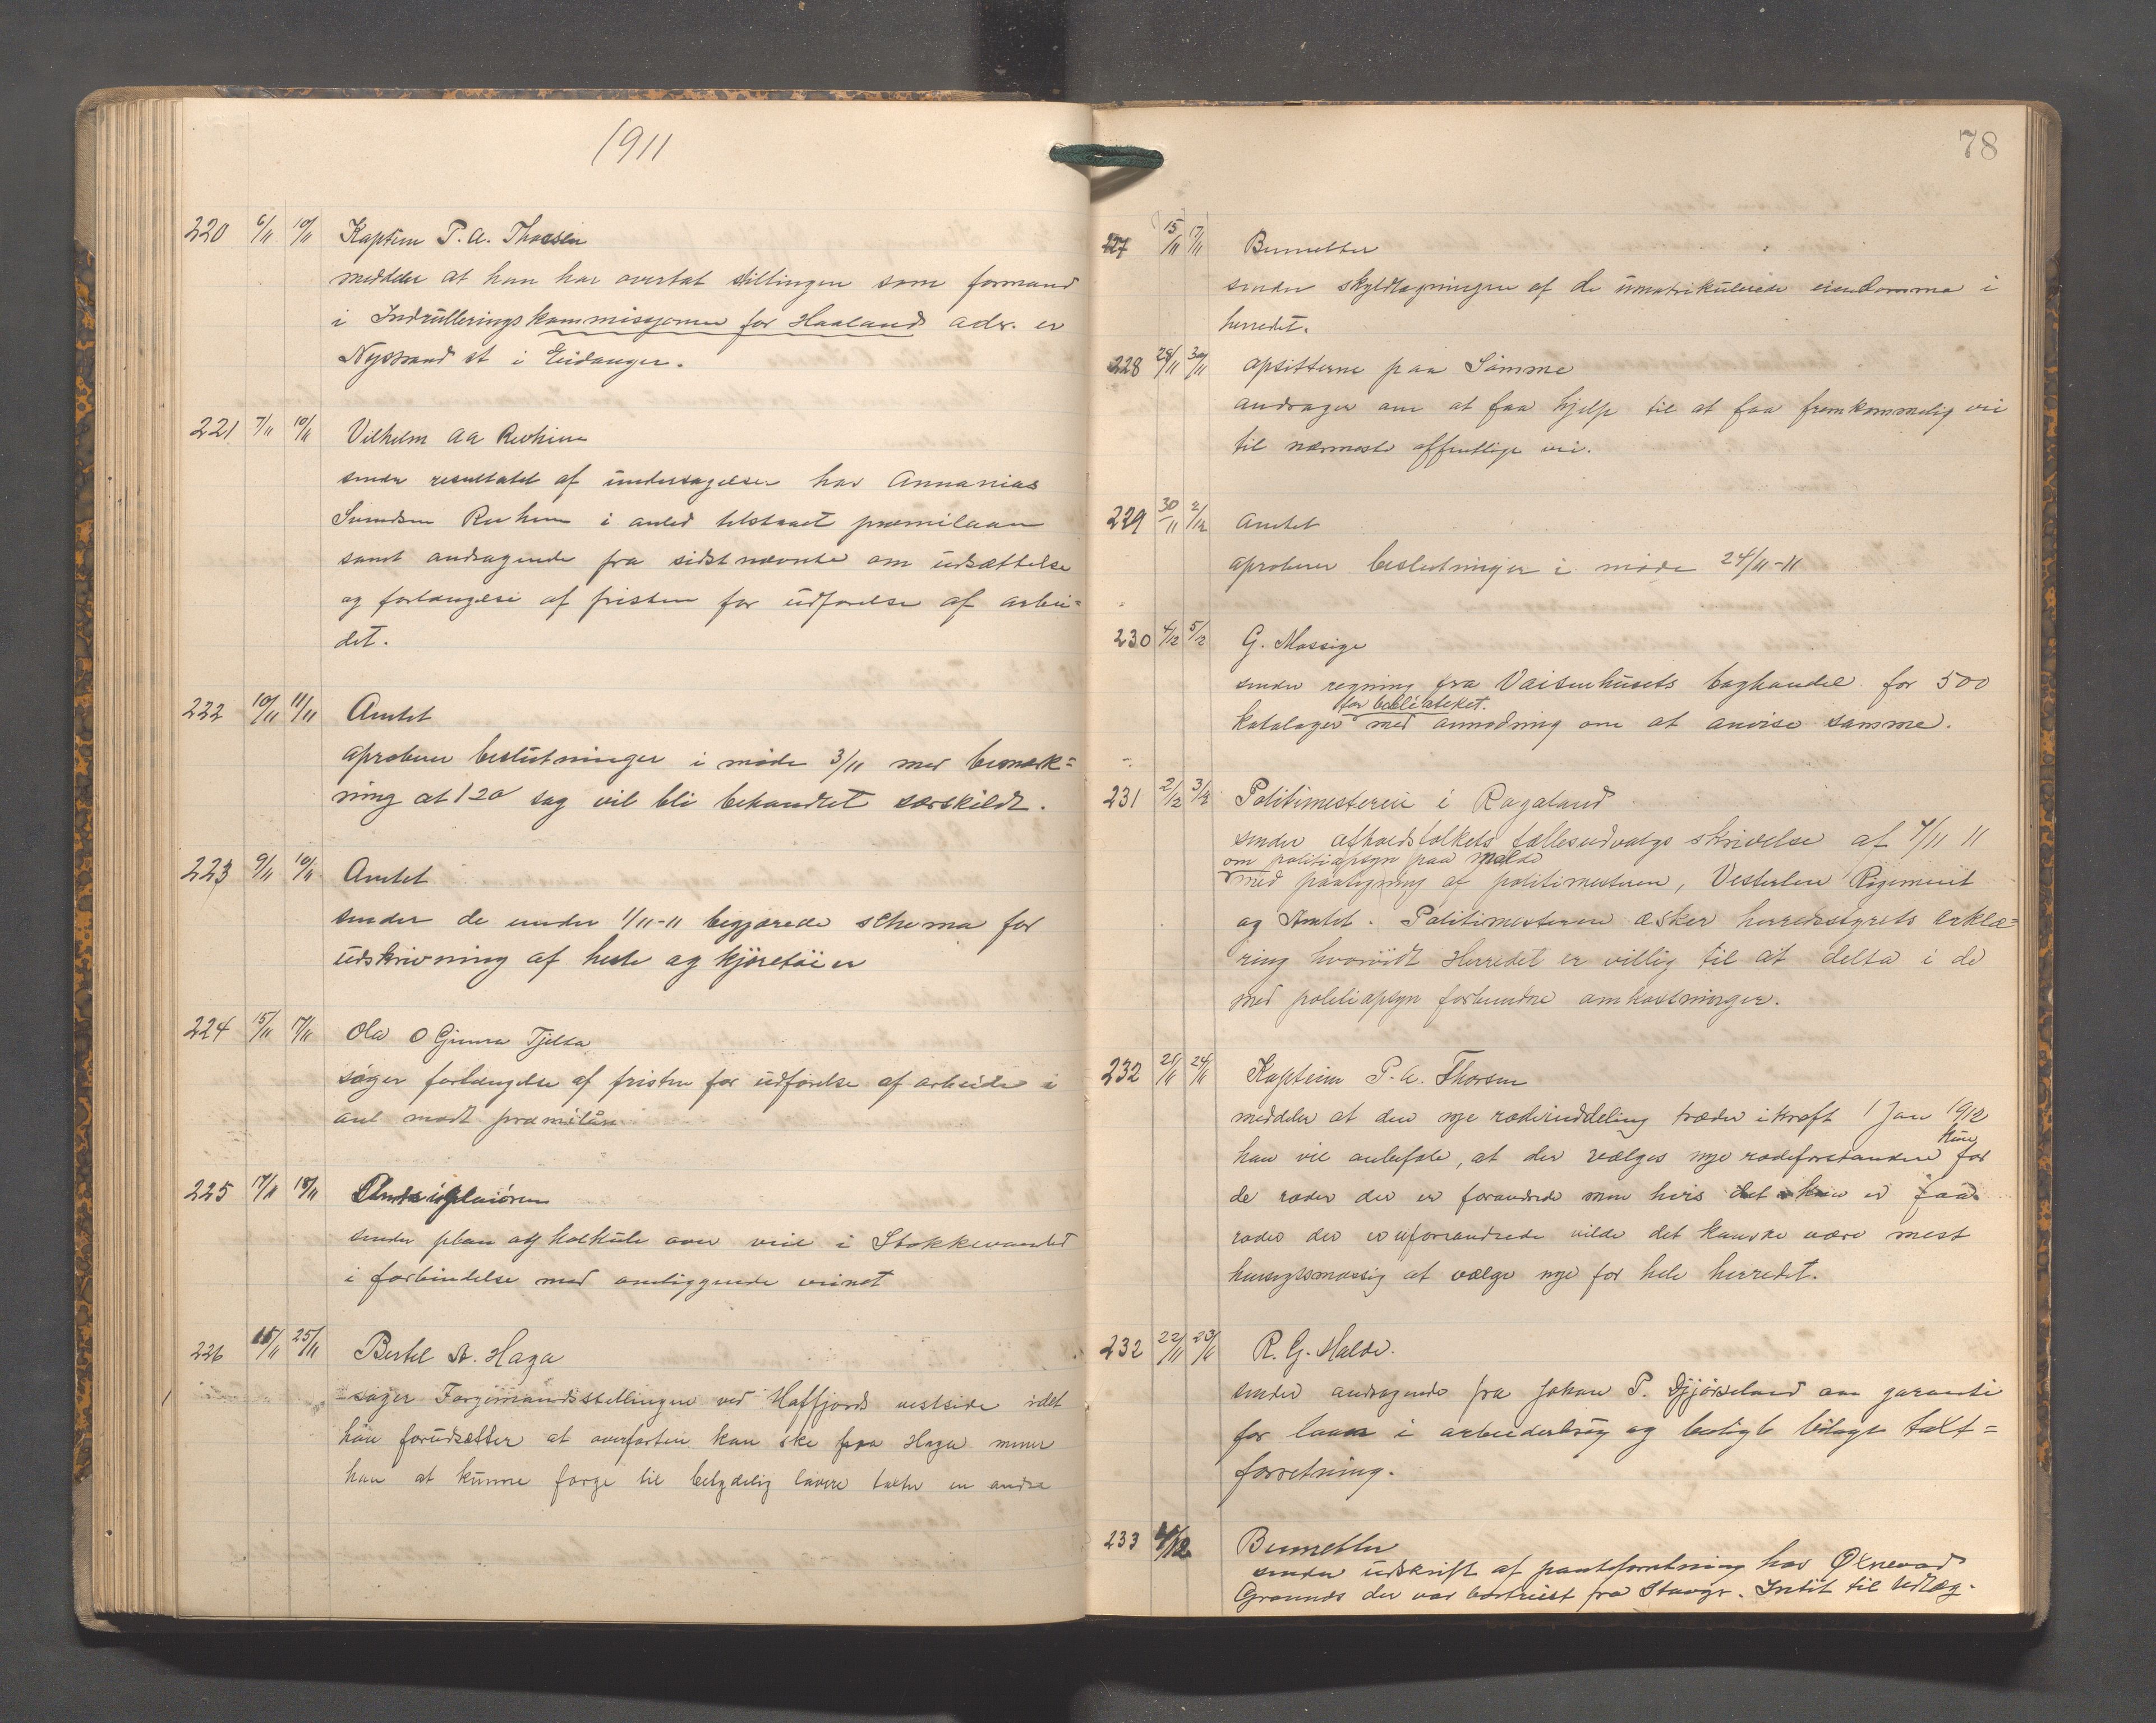 1911
220 6/11 10/11 Kaptein P. A. Thorsen
meddeler at han har overtat stillingen som formand
i Indrulleringskommissjonen for Haaland adr. er
Nystrand st i Eidanger.
221 7/11 10/11 Vilhelm Aa Revheim
sender resultatet af undersøgelsen hos Annanias
Svendsen Revheim i anled tilstaaet præmilaan
samt andragende fra sidstnævnte om udsættelse
og forlængelse af fristen for udførelse af arbei=
det.
222 10/11 11/11 Amtet
aproberer beslutninger i møde 3/11 med bemærk=
ning at 120 sag vil bli behandlet særskildt.
223 9/11 10/11 Amtet
sender de under 1/11-11 begjærede schema for
udskrivning af heste og kjøretøier
224 15/11 17/11 Ola O Gimra Tjelta
søger forlængelse af fristen for udførelse af arbeide i
anl modt præmilån
225 17/11 18/11 Amtsingeniøren
sender plan og kalkule over veie i Stokkevandet
i forbindelse med omliggende veinet
226 15/11 25/11 Bertel A. Haga
søger Færgemandsstillingen ved Hafsfjords vestside idet
han forudsætter at overfarten kan ske fra Haga mener
han at kunne færge til betydelig lavere takter en andre
78
227 15/11 17/11 Burnetter
sender skyldlagningen af de umatrikulerede eiendomme i
herredet.
228 28/11 30/11 Opsitterne paa Sømme
andrager om at faa hjelp til at faa fremkommelig vei
til nærmeste offentlige vei.
229 30/11 2/12 Amtet
aproberer beslutninger i møde 24/11-11
230 4/12 5/12 G. Mossige
sender regning fra Vaisenhusets boghandel for 500
for biblioteket.
kataloger med anmodning om at anvise samme.
231 2/12 3/12 Politimesteren i Rogaland
sender afholdsfolkets fællesudvalgs skrivelse af 7/11 11
om politiopsyn paa Malde
med paategning af politimesteren, Vesterlen Regiment
og Amtet. Politimesteren æsker herredsstyrets erklæ=
ring hvorvidt Herredet er villig til at delta i de
med politiopsyn forbundne omkostninger.
232 21/11 24/11 Kaptein P. A. Thorsen
meddeler at den nye rodeinddeling træder i kraft 1 Jan 1912
kun
han vil anbefale, at der vælges nye rodeforstandere for
de roder der er forandrede men hvis det er faa
roder der er uforandrede vilde det kanske være mest
hensigtsmæssig at vælge nye for hele herredet.
232 22/11 23/11 R. G. Malde.
sender andragende fra Johan P. Gjørseland om garanti
for laan i arbeiderbrug og bolig bilagt takst=
forretning.
233 4/12 Burnetter
sender udskrift af panteforretning hos Øxnevad
Grannes der var bortreist fra Stavgr. Intet til Udlæg.